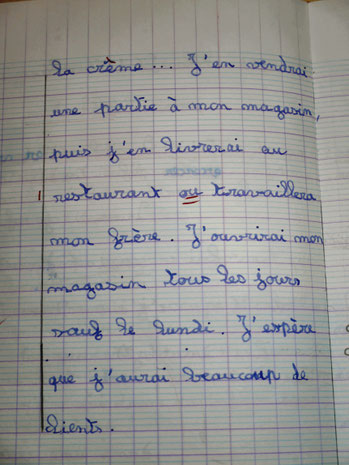 la crème ... J'en vendrai
une partie à mon magasin,
puis j'en livrerai au
restaurant ou travaillera
mon frère. J'ouvrirai mon
magasin tous les jours
sauf le lundi. J'espère
que j'aurai beaucoup de
clients.